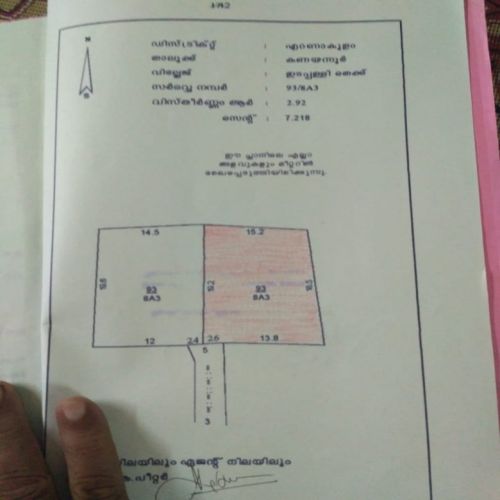 ഡിസ്ട്രിക്റ്റ് : എറണാകുളം
താലൂക്ക് : കണയന്നൂർ
വില്ലേജ് : ഇടപ്പള്ളി തെക്ക്
സർവ്വെ നമ്പർ : 93/8A3
വിസ്തീർണ്ണം ആർ : 2.92
സെന്റ് : 7.218
ഈ പ്ലാനിലെ എല്ലാ
അളവുകളും മീറ്ററിൽ
രേഖപ്പെടുത്തിയിരിക്കുന്നു.
N
S
14.5 15.2
93
8A3
93
8A3
12 2.4 2.6 13.8
5
3
നിലയിലും ഏജന്റ് നിലയിലും
കെ.പീറ്റർ